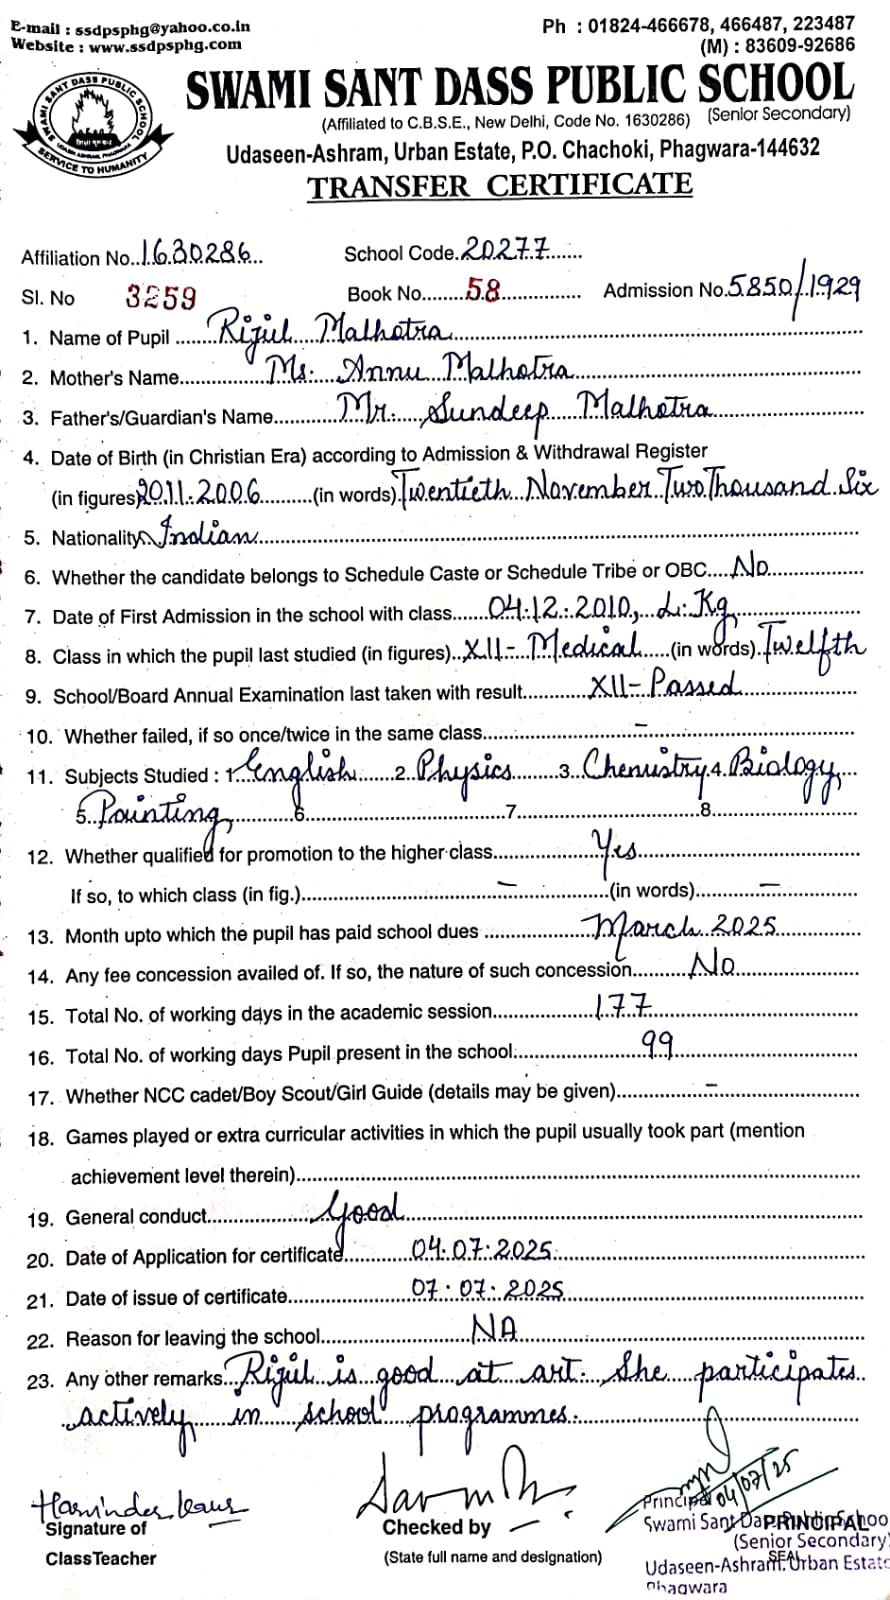 E-mail : ssdpsphg@yahoo.co.in
Website : www.ssdpsphg.com
Ph : 01824-466678, 466487, 223487
(M) : 83609-92686
SWAMI SANT DASS PUBLIC SCHOOL
SWAMI SANT DASS PUBLIC SCHOOL
SERVICE TO HUMANITY
(Affiliated to C.B.S.E., New Delhi, Code No. 1630286) (Senior Secondary)
Udaseen-Ashram, Urban Estate, P.O. Chachoki, Phagwara-144632
TRANSFER CERTIFICATE
Affiliation No. 1630286 School Code. 20277
Sl. No 3259 Book No. 58 Admission No. 5850/1929
1. Name of Pupil Rijul Malhotra
2. Mother's Name Ms. Annu Malhotra
3. Father's/Guardian's Name Mr. Sundeep Malhotra
4. Date of Birth (in Christian Era) according to Admission & Withdrawal Register
(in figures) 20.11.2006 (in words) Twentieth November Two Thousand Six
5. Nationality Indian
6. Whether the candidate belongs to Schedule Caste or Schedule Tribe or OBC No
7. Date of First Admission in the school with class 04.12.2010, L.Kg
8. Class in which the pupil last studied (in figures) XII- Medical (in words) Twelfth
9. School/Board Annual Examination last taken with result XII-Passed
10. Whether failed, if so once/twice in the same class –
11. Subjects Studied : 1. English 2. Physics 3. Chemistry 4. Biology,
5. Painting, 6 7 8
12. Whether qualified for promotion to the higher class Yes
If so, to which class (in fig.) – (in words) –
13. Month upto which the pupil has paid school dues March 2025
14. Any fee concession availed of. If so, the nature of such concession No
15. Total No. of working days in the academic session 177
16. Total No. of working days Pupil present in the school 99
17. Whether NCC cadet/Boy Scout/Girl Guide (details may be given) –
18. Games played or extra curricular activities in which the pupil usually took part (mention
achievement level therein)
19. General conduct Good
20. Date of Application for certificate 04.07.2025
21. Date of issue of certificate 07.07.2025
22. Reason for leaving the school NA
23. Any other remarks Rijul is good at art. She participates
actively in school programmes.
Harvinder Kaur
04/07/25
Signature of
ClassTeacher
Checked by
(State full name and designation)
Principal
PRINCIPAL
SEAL
Swami Sant Dass Public Schoo
(Senior Secondary)
Udaseen-Ashram. Urban Estate
Phagwara